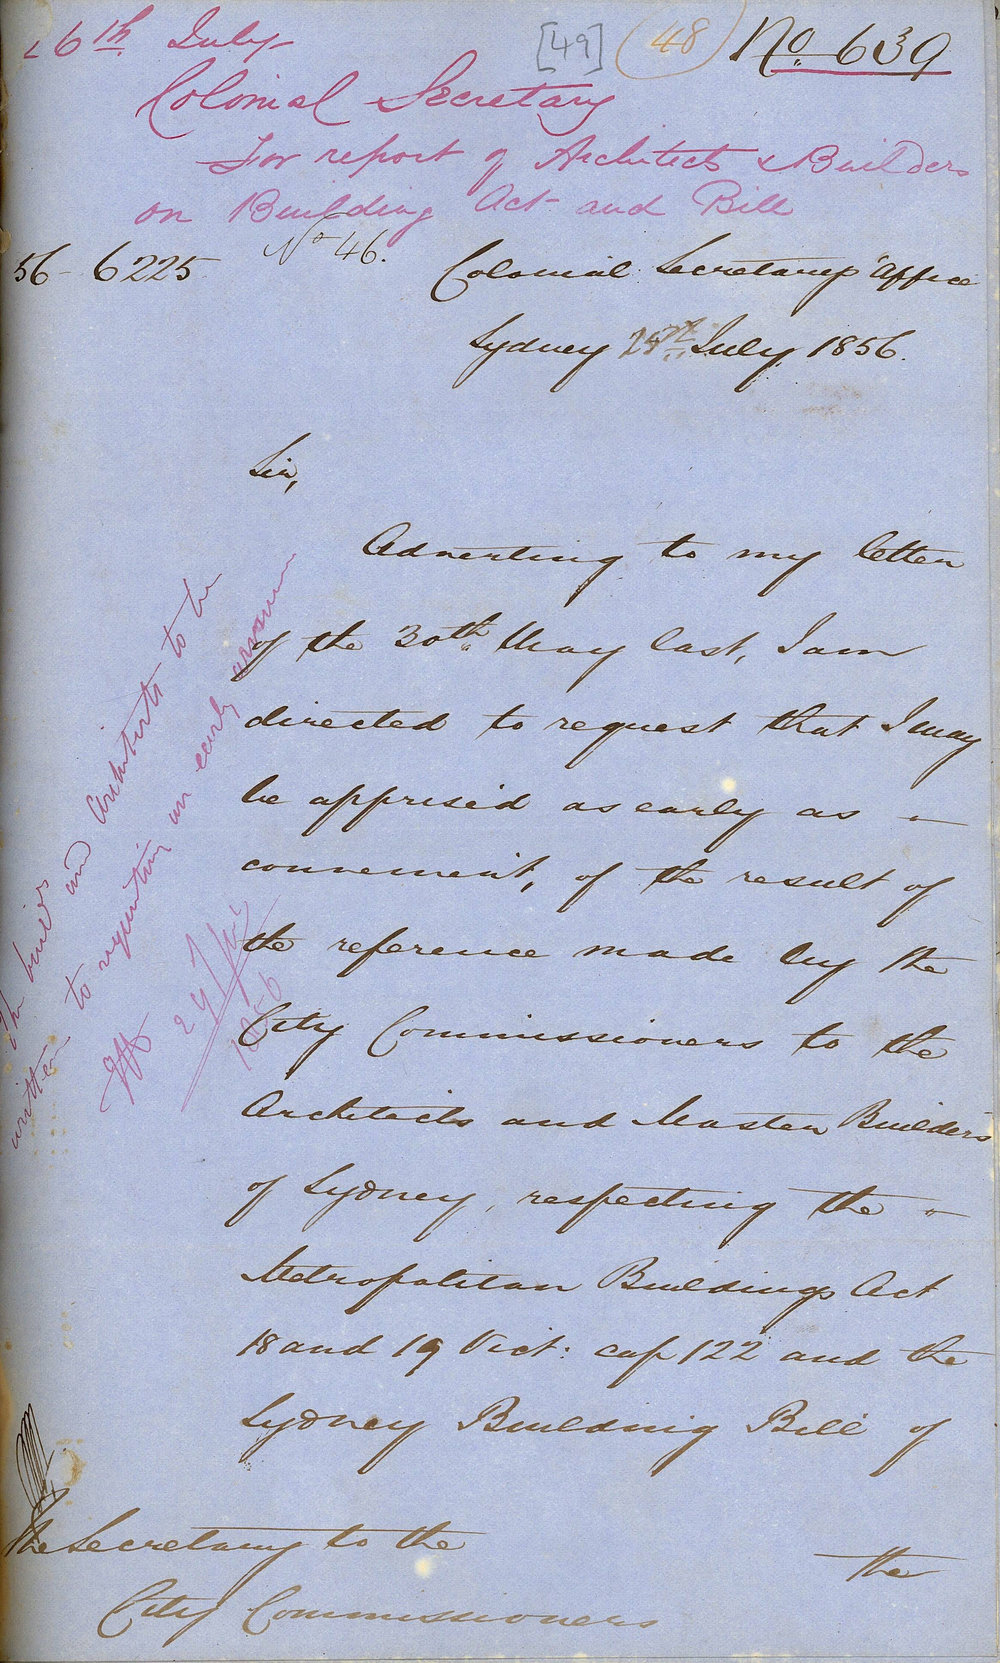 26th July
[49] (48) No 639
Colonial Secretary
For report of Architects & Builders
on Building Act and Bill
No 46.
56-6225
Colonial Secretary's Office
Sydney 25th July, 1856.
Sir,
Adverting to my letter
of the 30th May last, I am
directed to request that I may
be apprised as early as
convenient, of the result of
the reference made by the
City Commissioners to the
Architects and Master Builders
of Sydney, respecting the
Metropolitan Buildings Act
18 and 19 Vict: cap 122 and the
Sydney Building Bill of
the
The Secretary to the
City Commissioners
The builders and Architects to be
written to requesting an early answer
29 July
1856